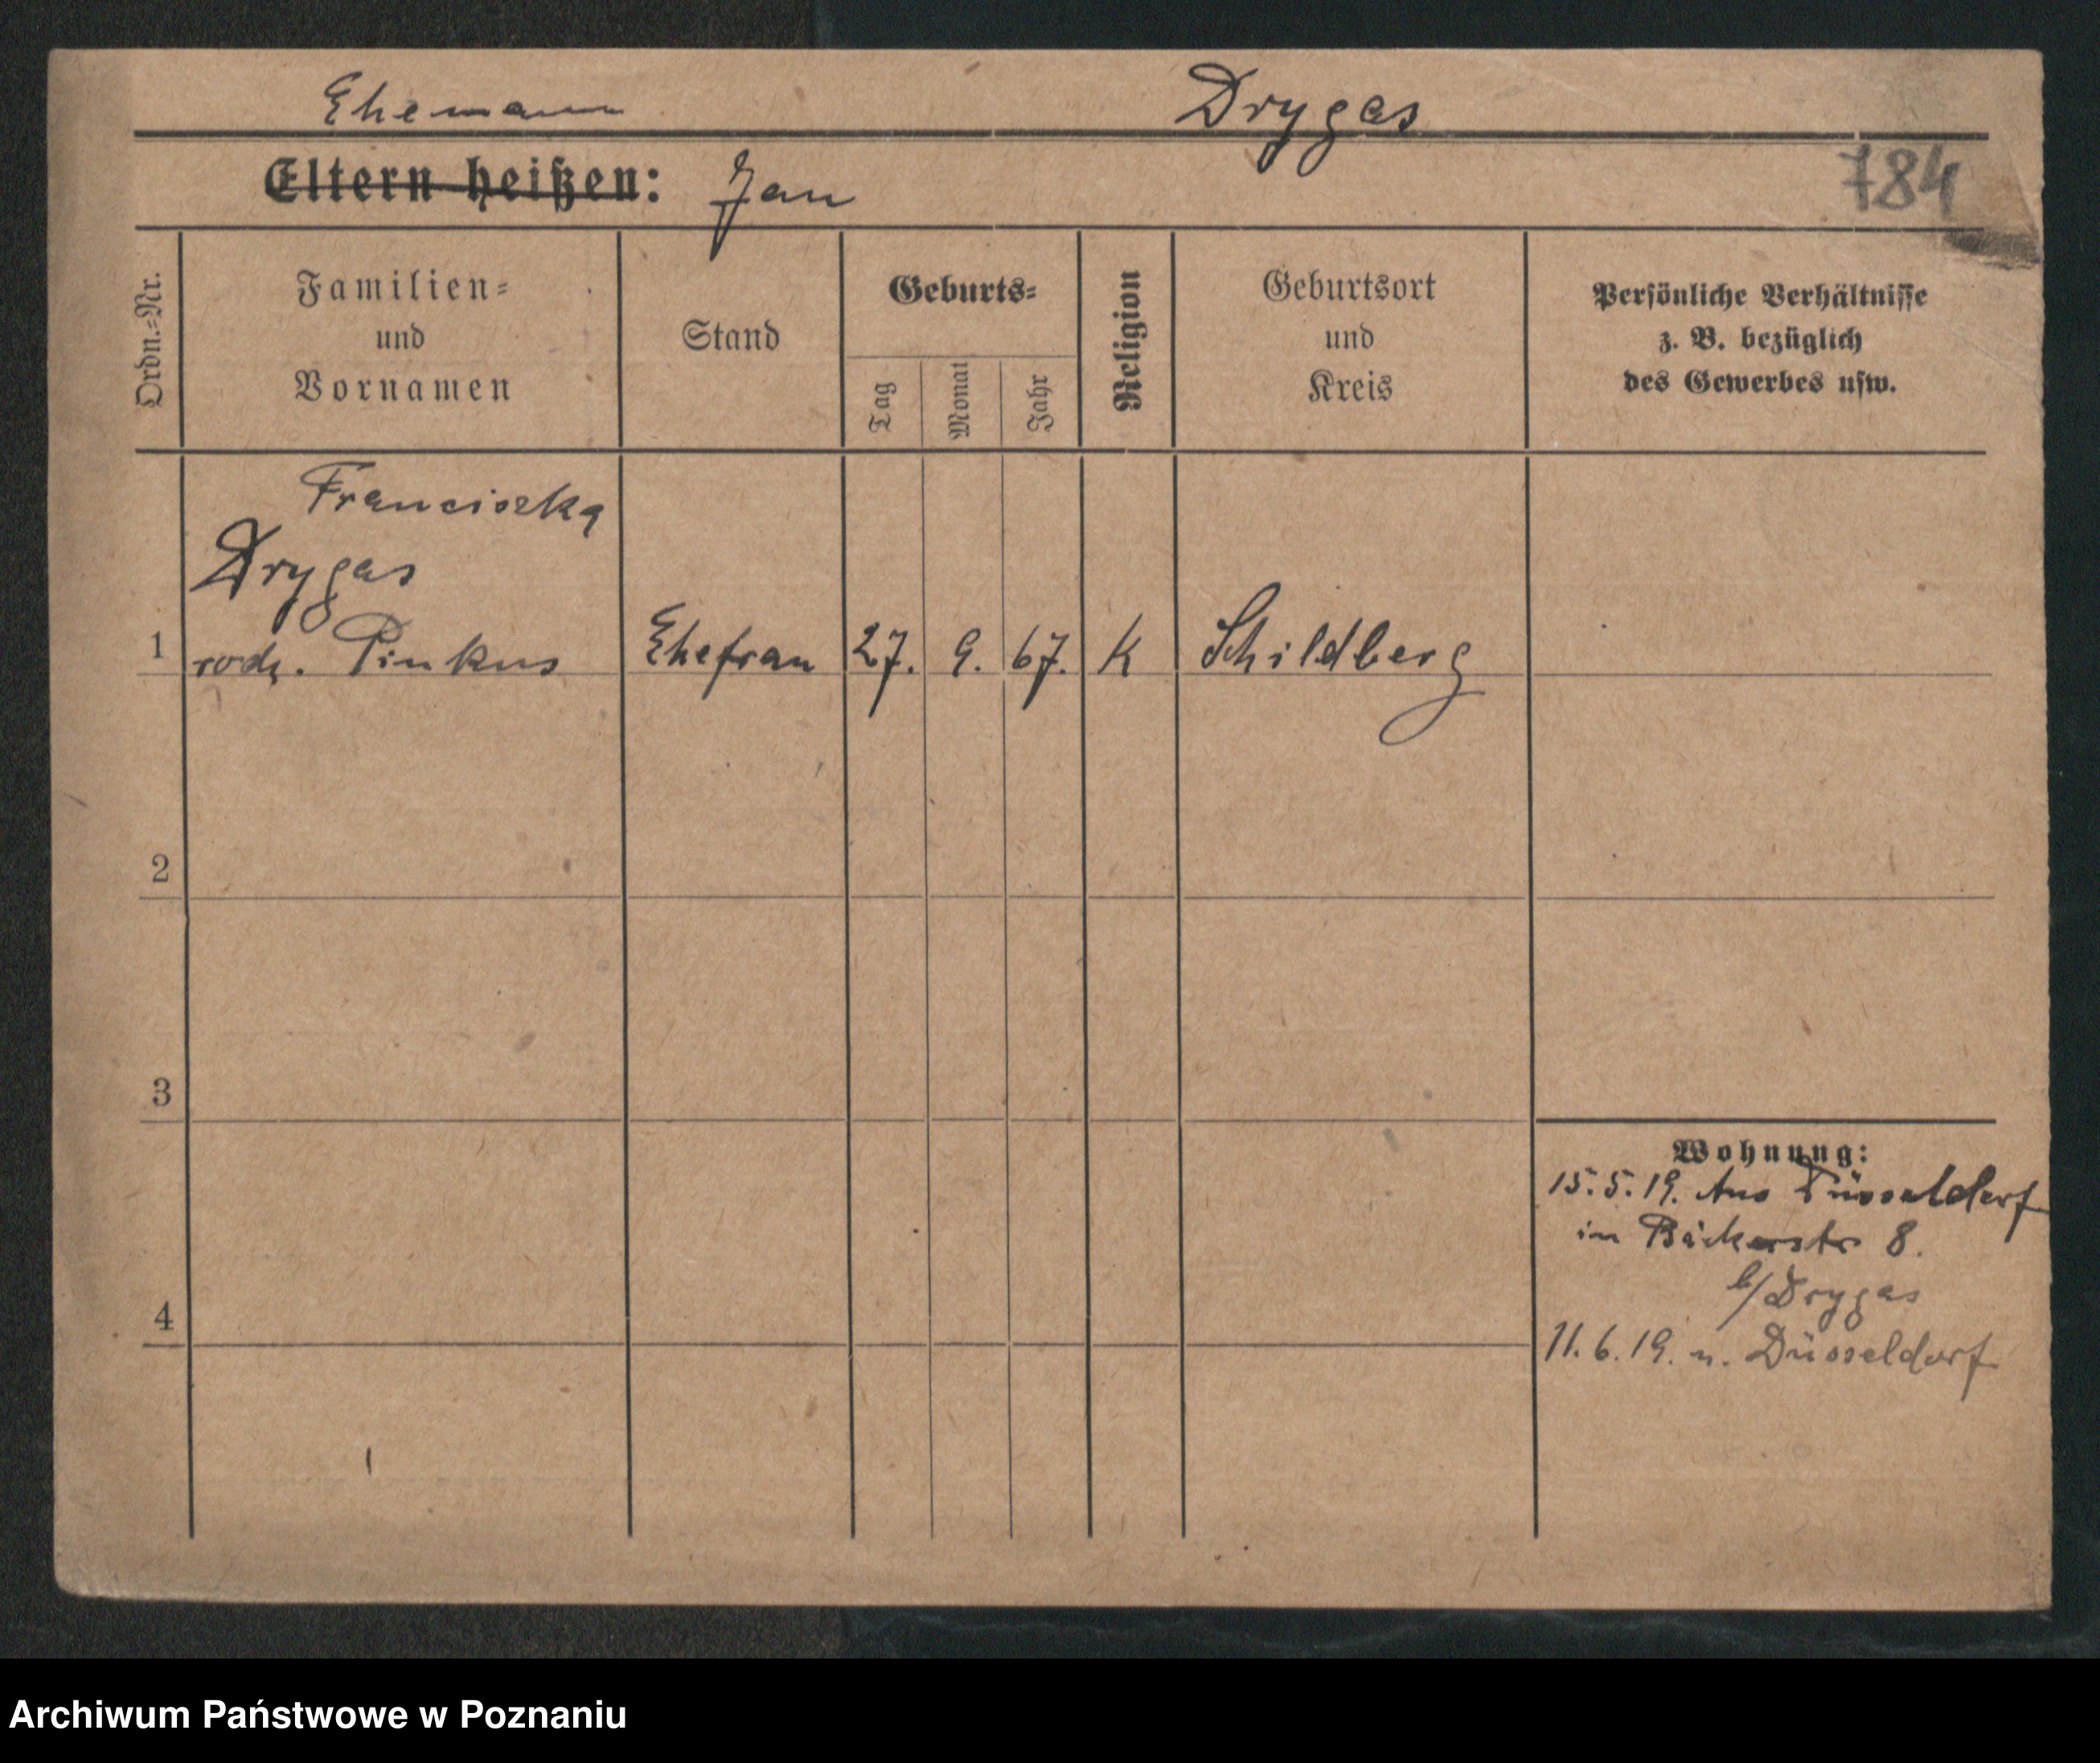 Ehemann Drygas
Eltern heißen: Jan
784
Ordn.-Nr.
Familien-
und
Vornamen
Stand
Geburts-
Tag
Monat
Jahr
Religion
Geburtsort
und
Kreis
Persönliche Verhältnisse
z. B. bezüglich
des Gewerbes usw.
Franciszka
Drygas
1 rodz. Pinkus Ehefrau 27. 9. 67. K Schildberg
2
3
Wohnung:
15.5.19. Aus Düsseldorf
in Bäckerstr 8.
b/Drygas
4
11.6.19. n. Düsseldorf
Archiwum Państwowe w Poznaniu